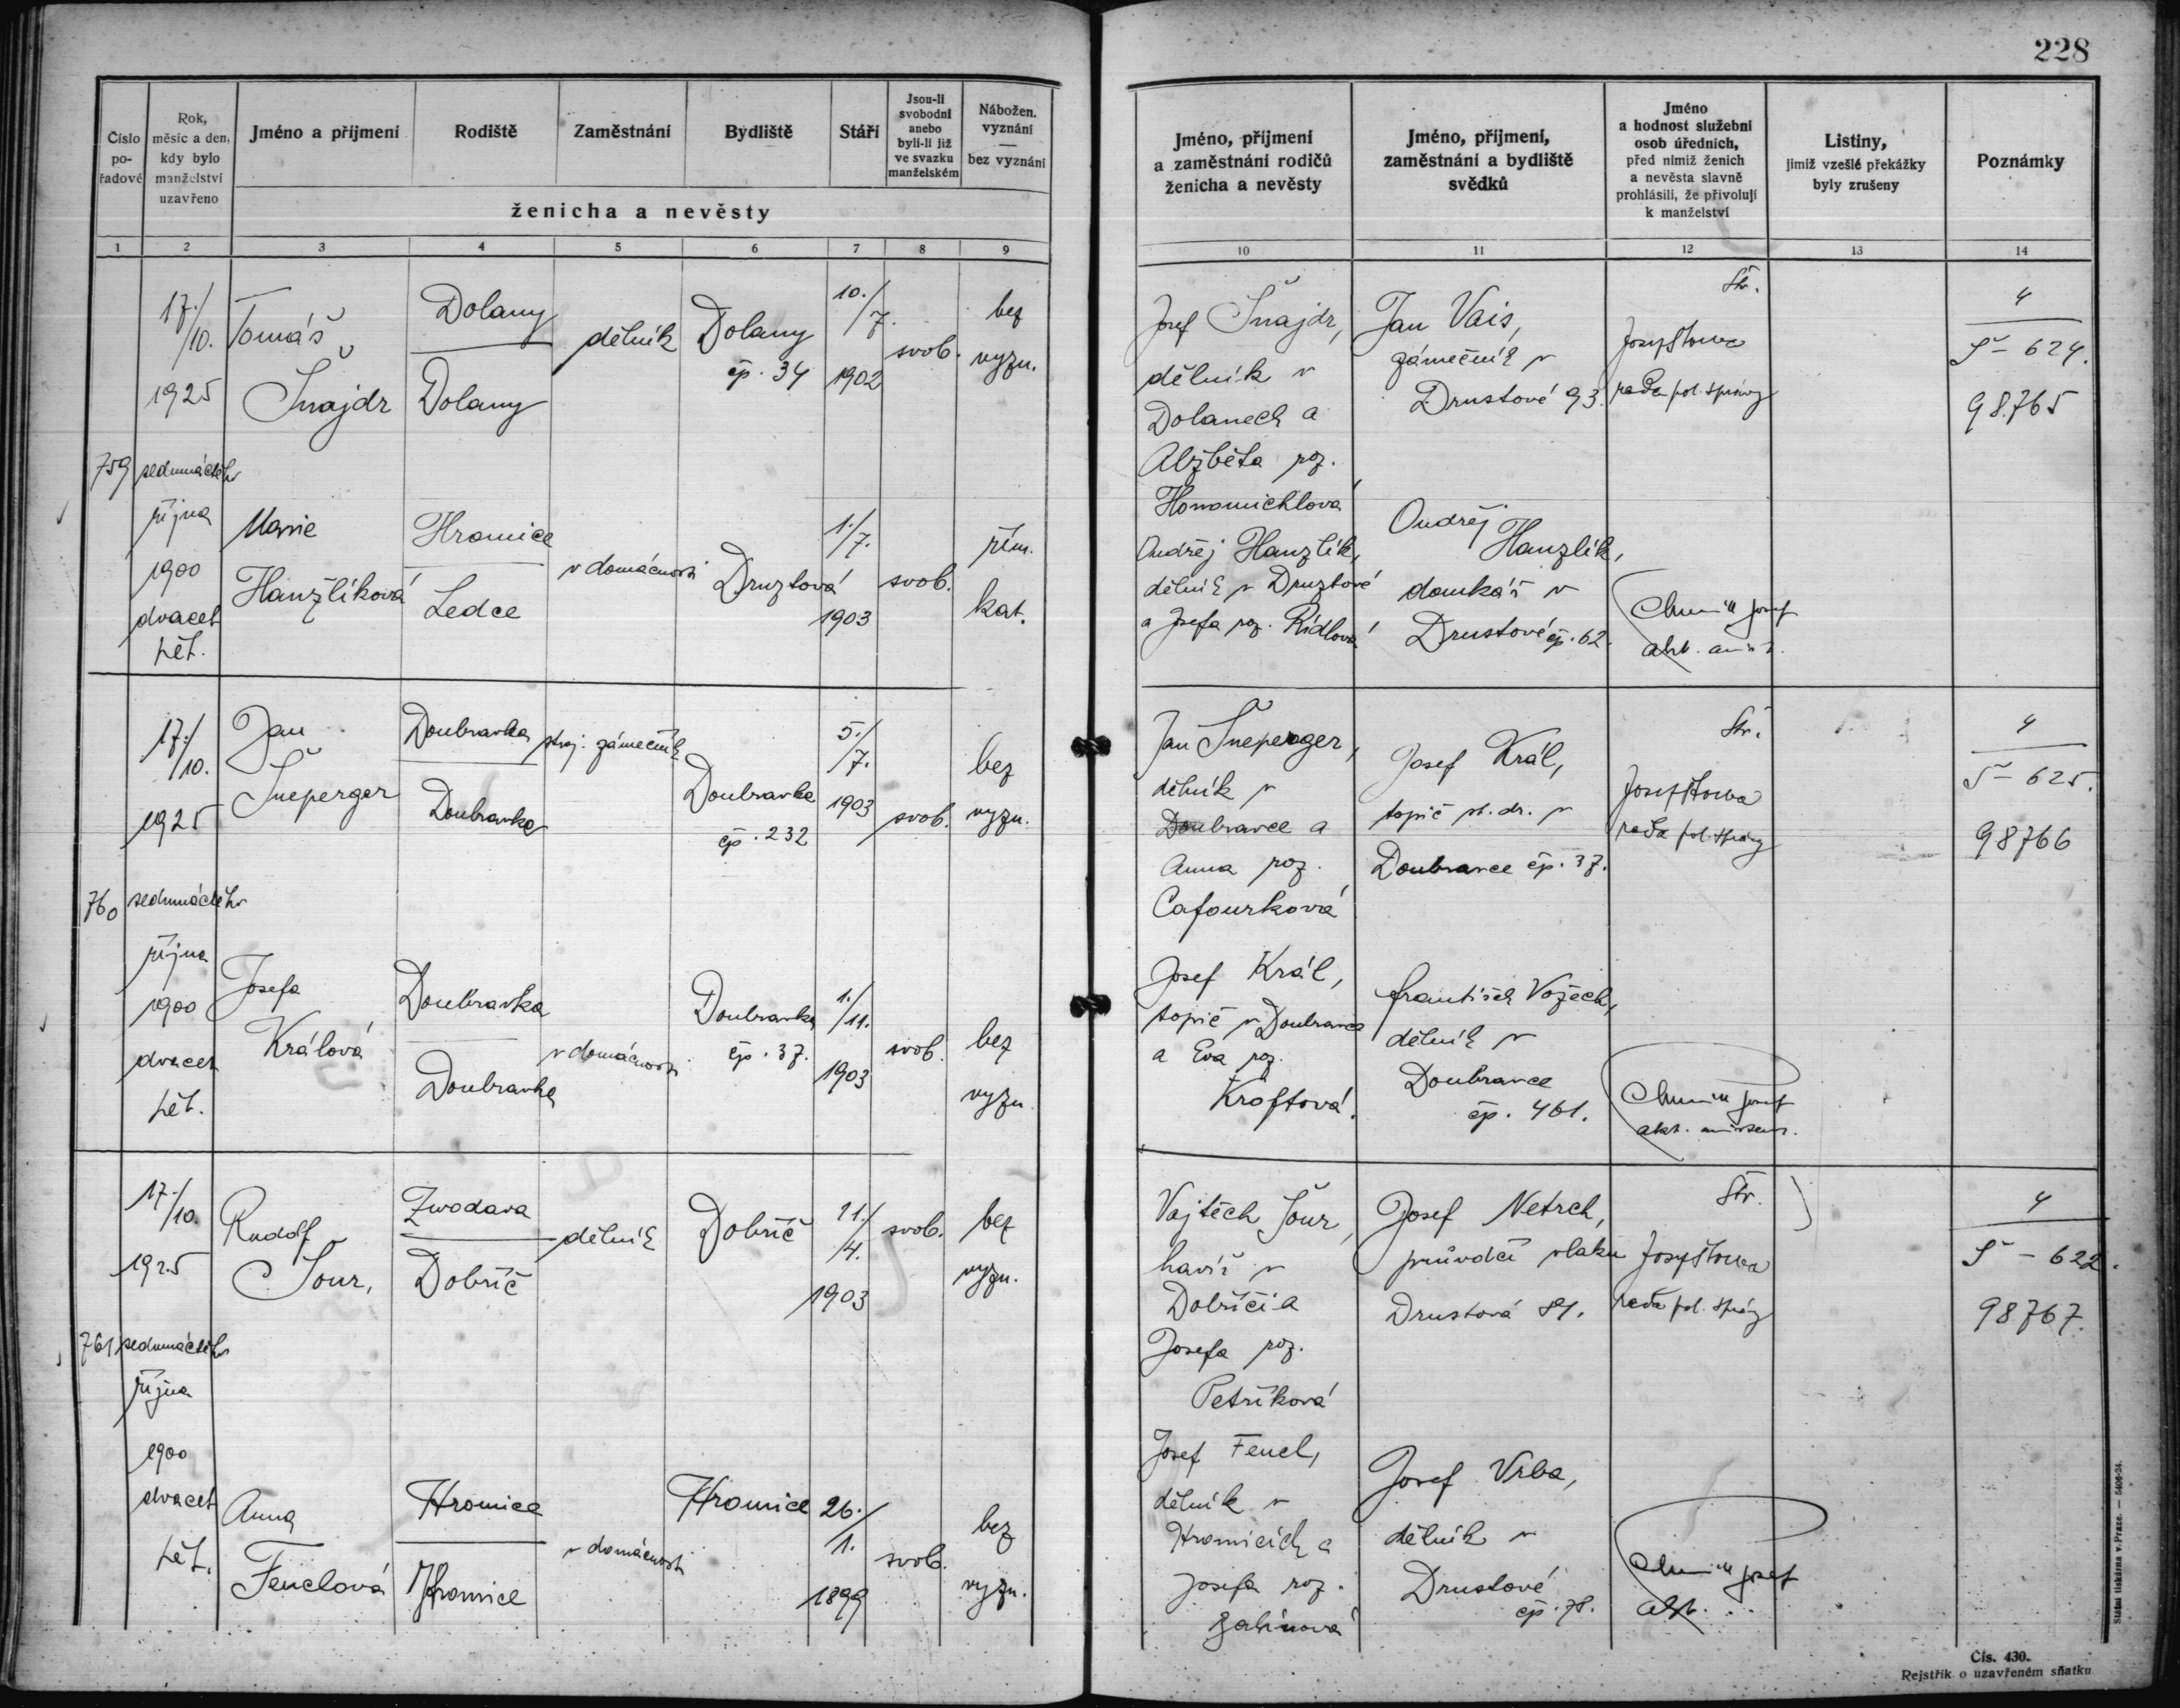 228
Číslo pořadové
Rok, měsíc a den, kdy bylo manželství uzavřeno
Jméno a příjmení
Rodiště
Zaměstnání
Bydliště
Stáří
Jsou-li svobodni anebo byli-li již ve svazku manželském
Nábožen. vyznání — bez vyznání
ženicha a nevěsty
1 2 3 4 5 6 7 8 9
Jméno, příjmení a zaměstnání rodičů ženicha a nevěsty
Jméno, příjmení, zaměstnání a bydliště svědků
Jméno a hodnost služební osob úředních, před nimiž ženich a nevěsta slavně prohlásili, že přivolují k manželství
Listiny, jimiž vzešlé překážky byly zrušeny
Poznámky
10 11 12 13 14
759
17./10.
1925
sedmnáctého
října
1900
dvacet
pět.
Tomáš
Šnajdr
Dolany
Dolany
dělník
Dolany
čp. 34
10./7.
1902
svob.
bez
vyzn.
Marie
Hanzlíková
Hromice
Ledce
v domácnosti
Druztová
1./7.
1903
svob.
řím.
kat.
Josef Šnajdr,
dělník v
Dolanech a
Alžběta roz.
Honomichlová
Ondřej Hanzlík,
dělník v Druztové
a Josefa roz. Rídlová
Jan Vais,
zámečník v
Drustové 93.
Ondřej
Hanzlík,
domkář v
Drustové čp. 62.
Str.
rada pol. správy
Josef
4
Š - 624.
98.765
760
17./10.
1925
sedmnáctého
října
1900
dvacet
pět.
Jan
Šneperger
Doubravka
Doubravka
stroj. zámečník
Doubravka
čp. 232
5./7.
1903
svob.
bez
vyzn.
Josefa
Králová
Doubravka
Doubravka
v domácnosti
Doubravka
čp. 37.
1./11.
1903
svob.
bez
vyzn
Jan Šneperger,
dělník v
Doubravce a
Anna roz.
Cafourková
Josef Král,
topič v Doubravce
a Eva roz.
Kroftová.
Josef Král,
topič st. dr. v
Doubravce čp. 37.
František Vožech,
dělník v
Doubravce
čp. 461.
Str.
rada pol. správy
Josef
4
Š - 625.
98766
761
17./10.
1925
sedmnáctého
října
1900
dvacet
pět.
Rudolf
Šour,
Zwodava
Dobříč
dělník
Dobříč
21./4.
1903
svob.
bez
vyzn.
Anna
Fenclová
Hromice
Hromice
v domácnosti
Hromice
26./1.
1899
svob.
bez
vyzn.
Vojtěch Šour,
havíř v
Dobříči a
Josefa roz.
Petříková
Josef Fencl,
dělník v
Hromicích a
Josefa roz.
Josef Netrch,
průvodčí vlaku
Drustová 89.
Josef Vrba,
dělník v
Drustové
čp. 78.
Str.
rada pol. správy
Josef
4
Š - 622.
98767.
Státní tiskárna v Praze. — 5406-24.
Čís. 430.
Rejstřík o uzavřeném sňatku